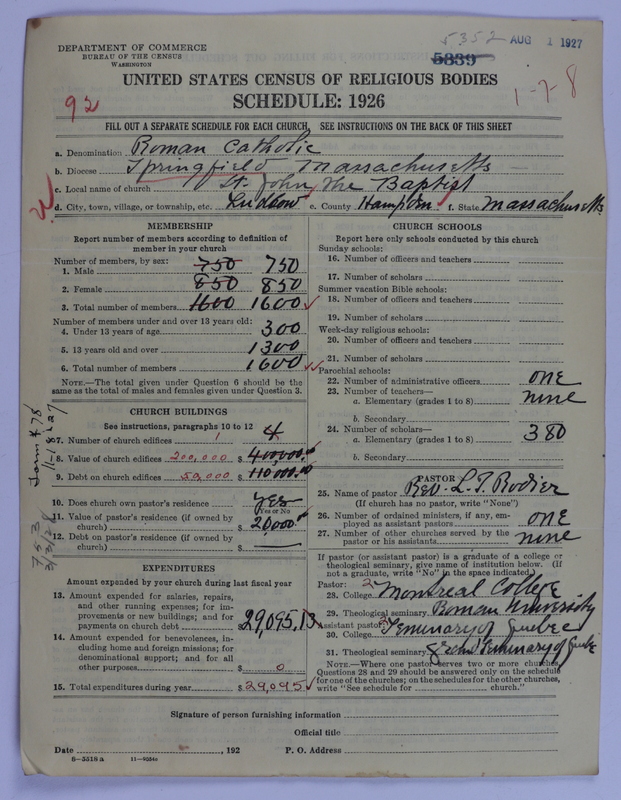 5352 AUG 1 1927
5839
DEPARTMENT OF COMMERCE
BUREAU OF THE CENSUS
WASHINGTON
UNITED STATES CENSUS OF RELIGIOUS BODIES
SCHEDULE: 1926
92
1-7-8
FILL OUT A SEPARATE SCHEDULE FOR EACH CHURCH. SEE INSTRUCTIONS ON THE BACK OF THIS SHEET
a. Denomination Roman Catholic
b. Diocese Springfield Massachusetts
c. Local name of church St. John the Baptist
d. City, town, village, or township, etc. Ludlow e. County Hampden f. State Massachusetts
MEMBERSHIP
Report number of members according to definition of
member in your church
Number of members, by sex:
1. Male 750 750
2. Female 850 850
3. Total number of members 1600 1600
Number of members under and over 13 years old:
4. Under 13 years of age 300
5. 13 years old and over 1300
6. Total number of members 1600
NOTE.—The total given under Question 6 should be the
same as the total of males and females given under Question 3.
CHURCH BUILDINGS
See instructions, paragraphs 10 to 12
7. Number of church edifices 1 4
8. Value of church edifices 200,000 $ 400000.00
9. Debt on church edifices 50,000 $ 110,000.00
10. Does church own pastor's residence yes
Yes or No
11. Value of pastor's residence (if owned by
church) $ 20,000.00
12. Debt on pastor's residence (if owned by
church) $ —
EXPENDITURES
Amount expended by your church during last fiscal year
13. Amount expended for salaries, repairs,
and other running expenses; for im-
provements or new buildings; and for
payments on church debt $ 29,095.13
14. Amount expended for benevolences, in-
cluding home and foreign missions; for
denominational support; and for all
other purposes $ 0
15. Total expenditures during year $ 29,095
CHURCH SCHOOLS
Report here only schools conducted by this church
Sunday schools:
16. Number of officers and teachers
17. Number of scholars
Summer vacation Bible schools:
18. Number of officers and teachers
19. Number of scholars
Week-day religious schools:
20. Number of officers and teachers
21. Number of scholars
Parochial schools:
22. Number of administrative officers one
23. Number of teachers—
a. Elementary (grades 1 to 8) nine
b. Secondary
24. Number of scholars—
a. Elementary (grades 1 to 8) 380
b. Secondary
PASTOR
25. Name of pastor Rev. L. J. Rodier
(If church has no pastor, write "None")
26. Number of ordained ministers, if any, em-
ployed as assistant pastors one
27. Number of other churches served by the
pastor or his assistants none
If pastor (or assistant pastor) is a graduate of a college or
theological seminary, give name of institution below. (If
not a graduate, write "No" in the space indicated.)
Pastor:
28. College Montreal College
29. Theological seminary Roman University
Assistant pastor:
30. College Seminary of Quebec
31. Theological seminary Seminary of Quebec
NOTE.—Where one pastor serves two or more churches,
Questions 28 and 29 should be answered only on the schedule
for one of the churches; on the schedules for the other churches,
write "See schedule for church."
Signature of person furnishing information
Official title
Date , 192 P. O. Address
8-3518a 11-9254a